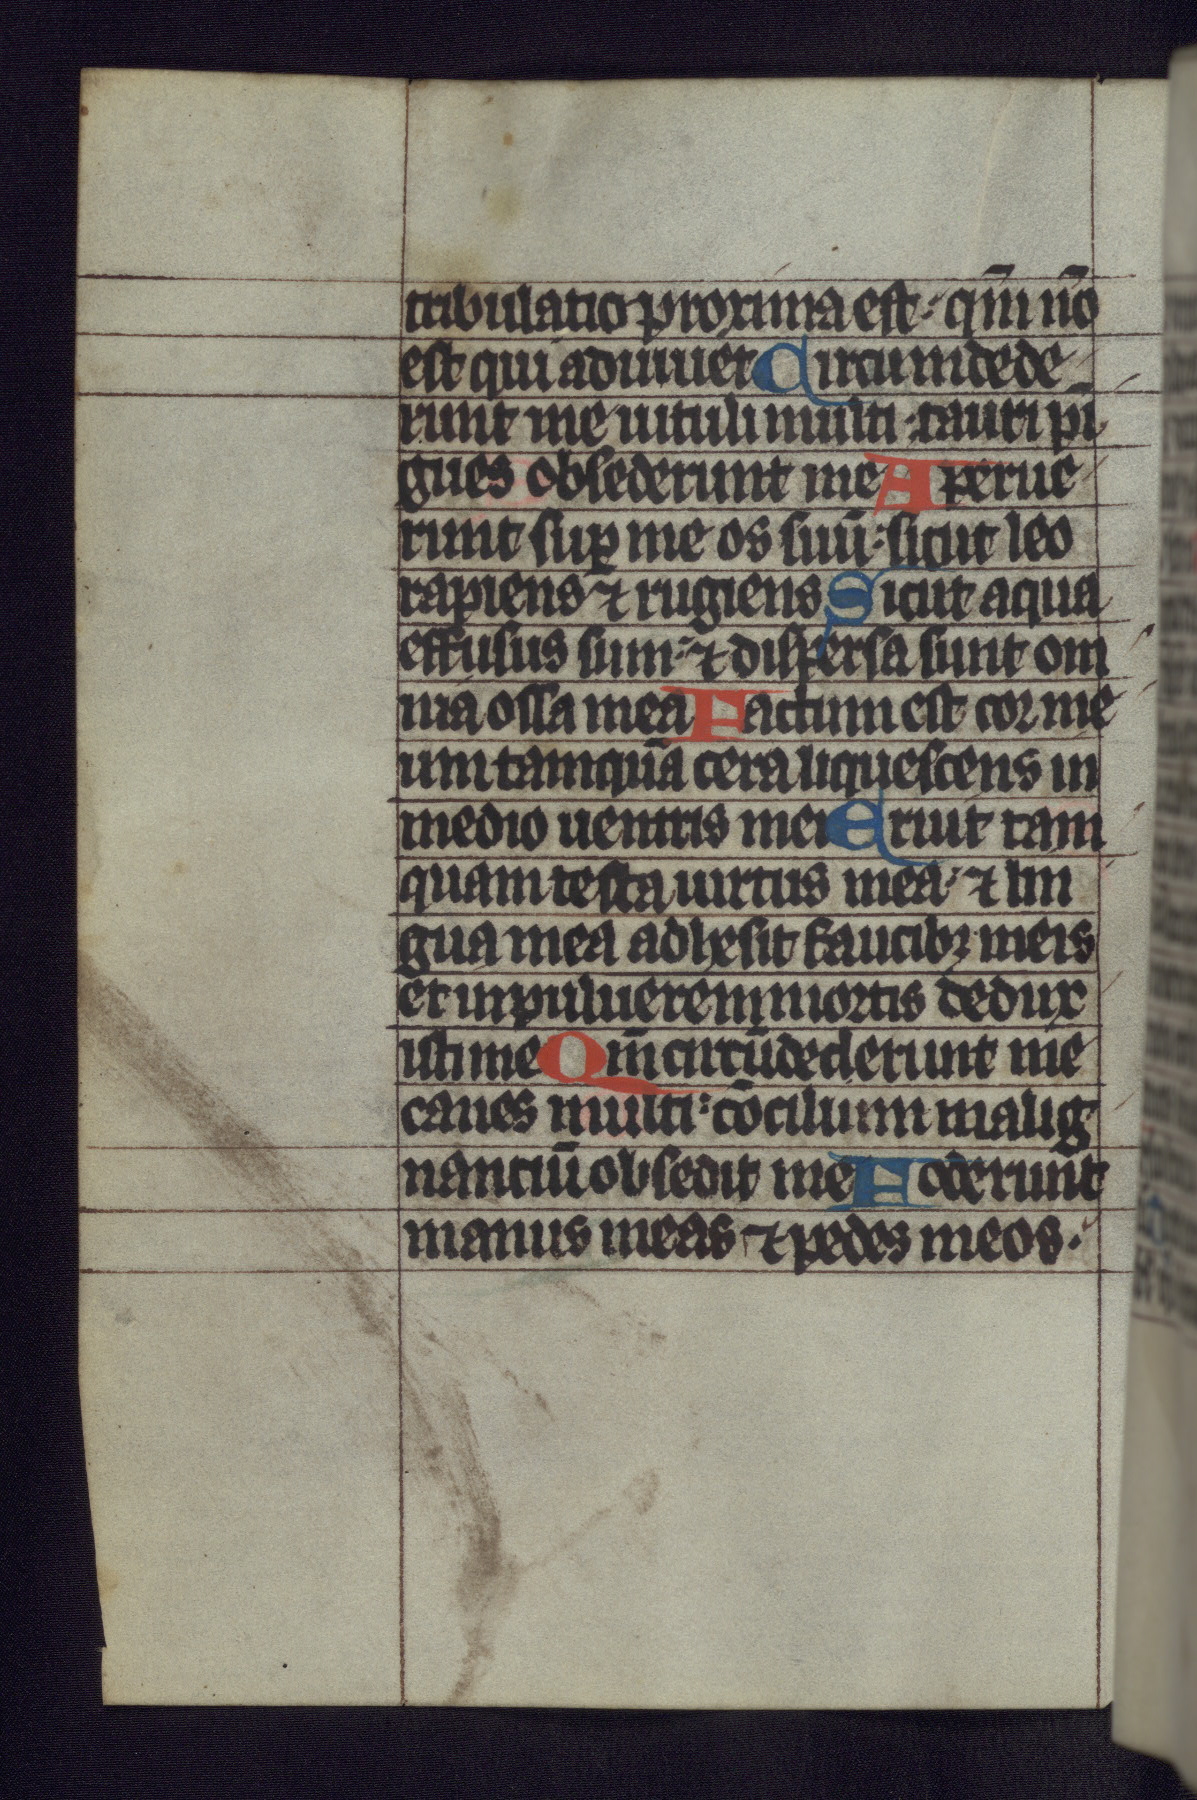 tribulatio proxima est: qm̄ nō
est qui adiuuet Circumdede
runt me uituli multi: tauri pī
gues obsederunt me Aperue
runt sup̱ me os suū: sicut leo
rapiens ⁊ rugiens Sicut aqua
effusus sum: ⁊ dispersa sunt om
nia ossa mea Factum est cor me
um tamquā cera liquescens in
medio uentris mei Eruit tam
quam testa uirtus mea: ⁊ lin
gua mea adhesit faucibꝫ meis
et in puluerem mortis dedux
isti me Qm̄ circūdederunt me
canes multi: cōcilium malig
nantiū obsedit me Foderunt
manus meas ⁊ pedes meos.